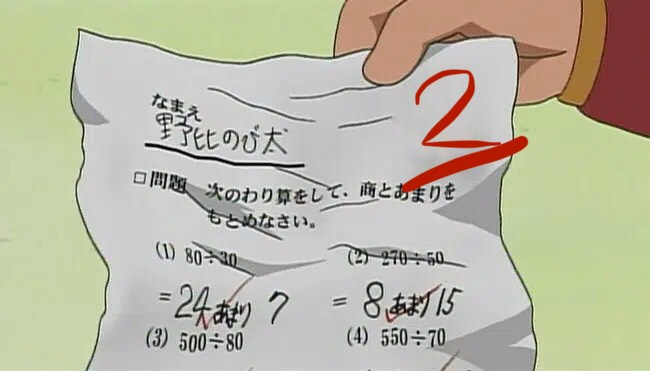 2
なまえ
野比のび太
□問題 次のわり算をして、商とあまりを
もとめなさい。
(1) 80÷30
(2) 270÷50
=24あまり 7
=8あまり15
(3) 500÷80
(4) 550÷70